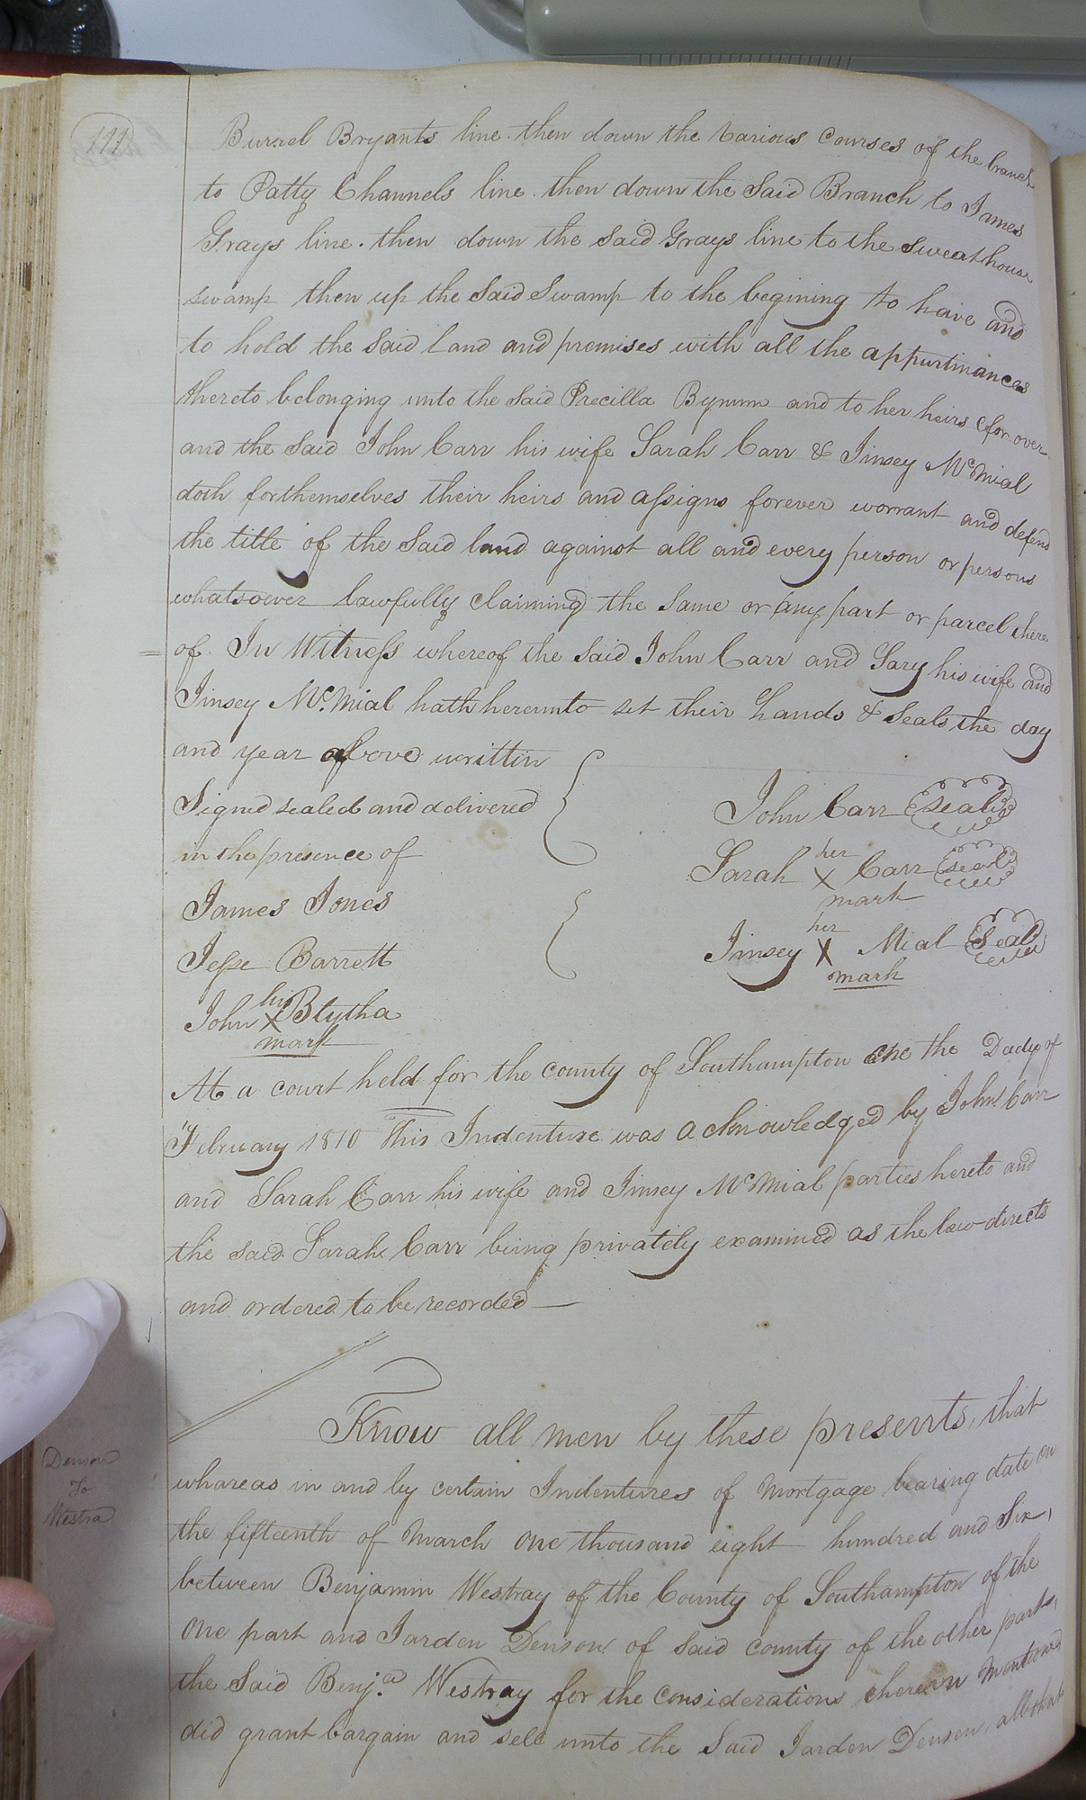 111
Burrel Bryants line then down the Various Courses of the branch
to Patty Channels line then down the Said Branch to James
Grays line. then down the said Grays line to the Sweathouse
swamp then up the Said Swamp to the begining to have and
to hold the Said Land and premises with all the appurtinances
thereto belonging unto the said Precilla Bynum and to her heirs for over
and the Said John Carr his wife Sarah Carr & Jinsey McMial
doth forthemselves their heirs and assigns forever worrant and defend
the title of the Said land against all and every person or persons
whatsoever lawfully claiming the Same or any part or parcel there
of In Witness whereof the Said John Carr and Sary his wife and
Jinsey Mc.Mial hath hereunto set their hands & Seals the day
and year above writtin
Signed sealed and delivered
in the presence of
James Jones
Jesse Barrett
John his X mark Blytha
John Carr Seal
Sarah her X mark Carr Seal
Jinsey her X mark Mial Seal
At a court held for the county of Southampton the Dady of
February 1810 This Indenture was acknowledged by John Carr
and Sarah Carr his wife and Jinsey McMial parties hereto and
the said Sarah Carr being privately examined as the law directs
and ordered to be recorded
Denson
To
Westra
Know all men by these presents, that
whareas in and by certain Indentures of Mortgage bearing date on
the fifteenth of March One thousand eight hundred and Six,
between Benjamin Westray of the County of Southampton of the
One part and Jarden Denson of said county of the other part,
the Said Benj.a Westray for the considerations therein mentioned
did grant bargain and sell unto the Said Jarden Denson, all that